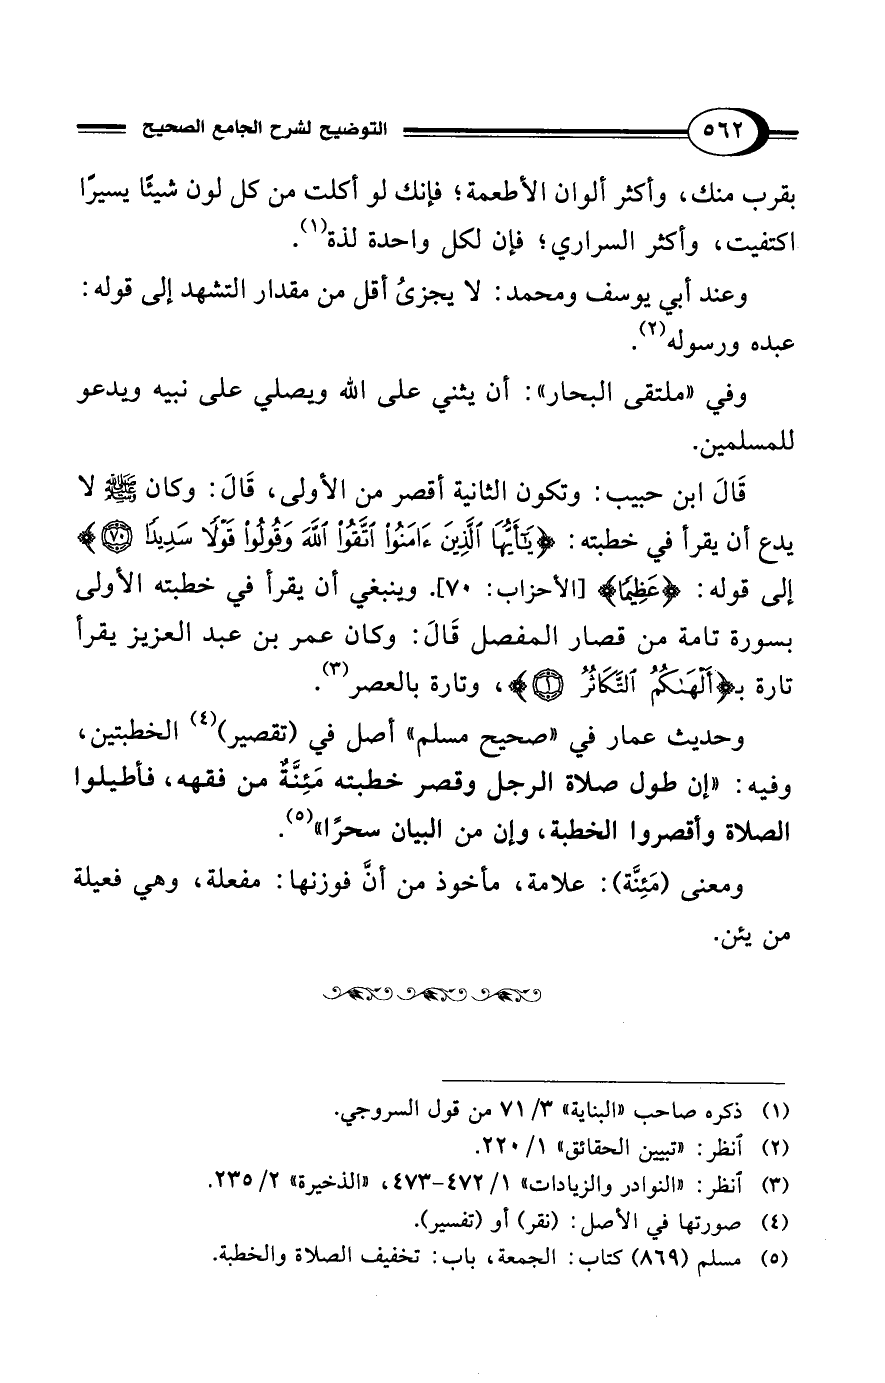 ٥٦٢ التوضيح لشرح الجامع الصحيح
بقرب منك، وأكثر ألوان الأطعمة؛ فإنك لو أكلت من كل لون شيئًا يسيرًا
اكتفيت، وأكثر السراري؛ فإن لكل واحدة لذة(١).
وعند أبي يوسف ومحمد: لا يجزئ أقل من مقدار التشهد إلى قوله:
عبده ورسوله(٢).
وفي «ملتقى البحار»: أن يثني على الله ويصلي على نبيه ويدعو
للمسلمين.
قَالَ ابن حبيب: وتكون الثانية أقصر من الأولى، قَالَ: وكان ﷺ لا
يدع أن يقرأ في خطبته: ﴿يَٰٓأَيُّهَا ٱلَّذِينَ ءَامَنُوا۟ ٱتَّقُوا۟ ٱللَّهَ وَقُولُوا۟ قَوْلًا سَدِيدًا ۝٧٠﴾
إلى قوله: ﴿عَظِيمًا﴾ [الأحزاب: ٧٠]. وينبغي أن يقرأ في خطبته الأولى
بسورة تامة من قصار المفصل قَالَ: وكان عمر بن عبد العزيز يقرأ
تارة بـ﴿أَلْهَىٰكُمُ ٱلتَّكَاثُرُ ۝١﴾، وتارة بالعصر(٣).
وحديث عمار في «صحيح مسلم» أصل في (تقصير)(٤) الخطبتين،
وفيه: «إن طول صلاة الرجل وقصر خطبته مَئِنَّةٌ من فقهه، فأطيلوا
الصلاة وأقصروا الخطبة، وإن من البيان سحرًا»(٥).
ومعنى (مَئِنَّة): علامة، مأخوذ من أنَّ فوزنها: مفعلة، وهي فعيلة
من يئن.
(١) ذكره صاحب «البناية» ٣/ ٧١ من قول السروجي.
(٢) أنظر: «تبيين الحقائق» ١/ ٢٢٠.
(٣) أنظر: «النوادر والزيادات» ١/ ٤٧٢-٤٧٣، «الذخيرة» ٢/ ٢٣٥.
(٤) صورتها في الأصل: (نقر) أو (تفسير).
(٥) مسلم (٨٦٩) كتاب: الجمعة، باب: تخفيف الصلاة والخطبة.